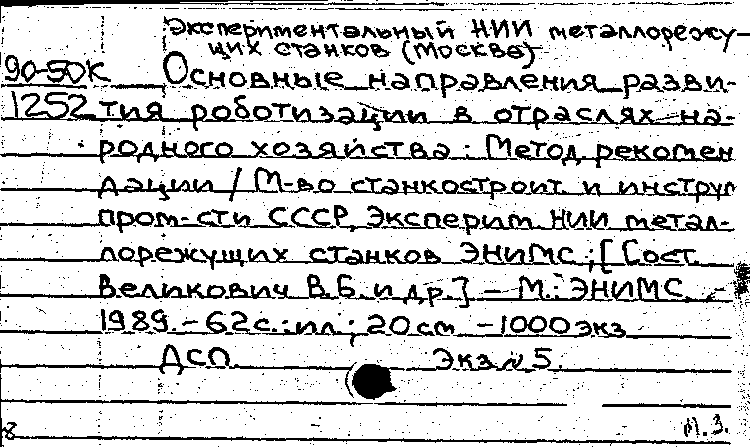 Экспериментальный НИИ металлорежу-
щих станков (Москва)
90-50К Основные направления разви-
1252 тия роботизации в отраслях на-
родного хозяйства : Метод. рекомен
дации / М-во станкостроит. и инструм
пром-сти СССР, Эксперим. НИИ метал-
лорежущих станков ЭНИМС ; [Сост.
Великович В.Б. и др.] – М. : ЭНИМС,
1989. – 62 с. : ил ; 20 см – 1000 экз
ДСП. Экз. N 5.
8 М.З.